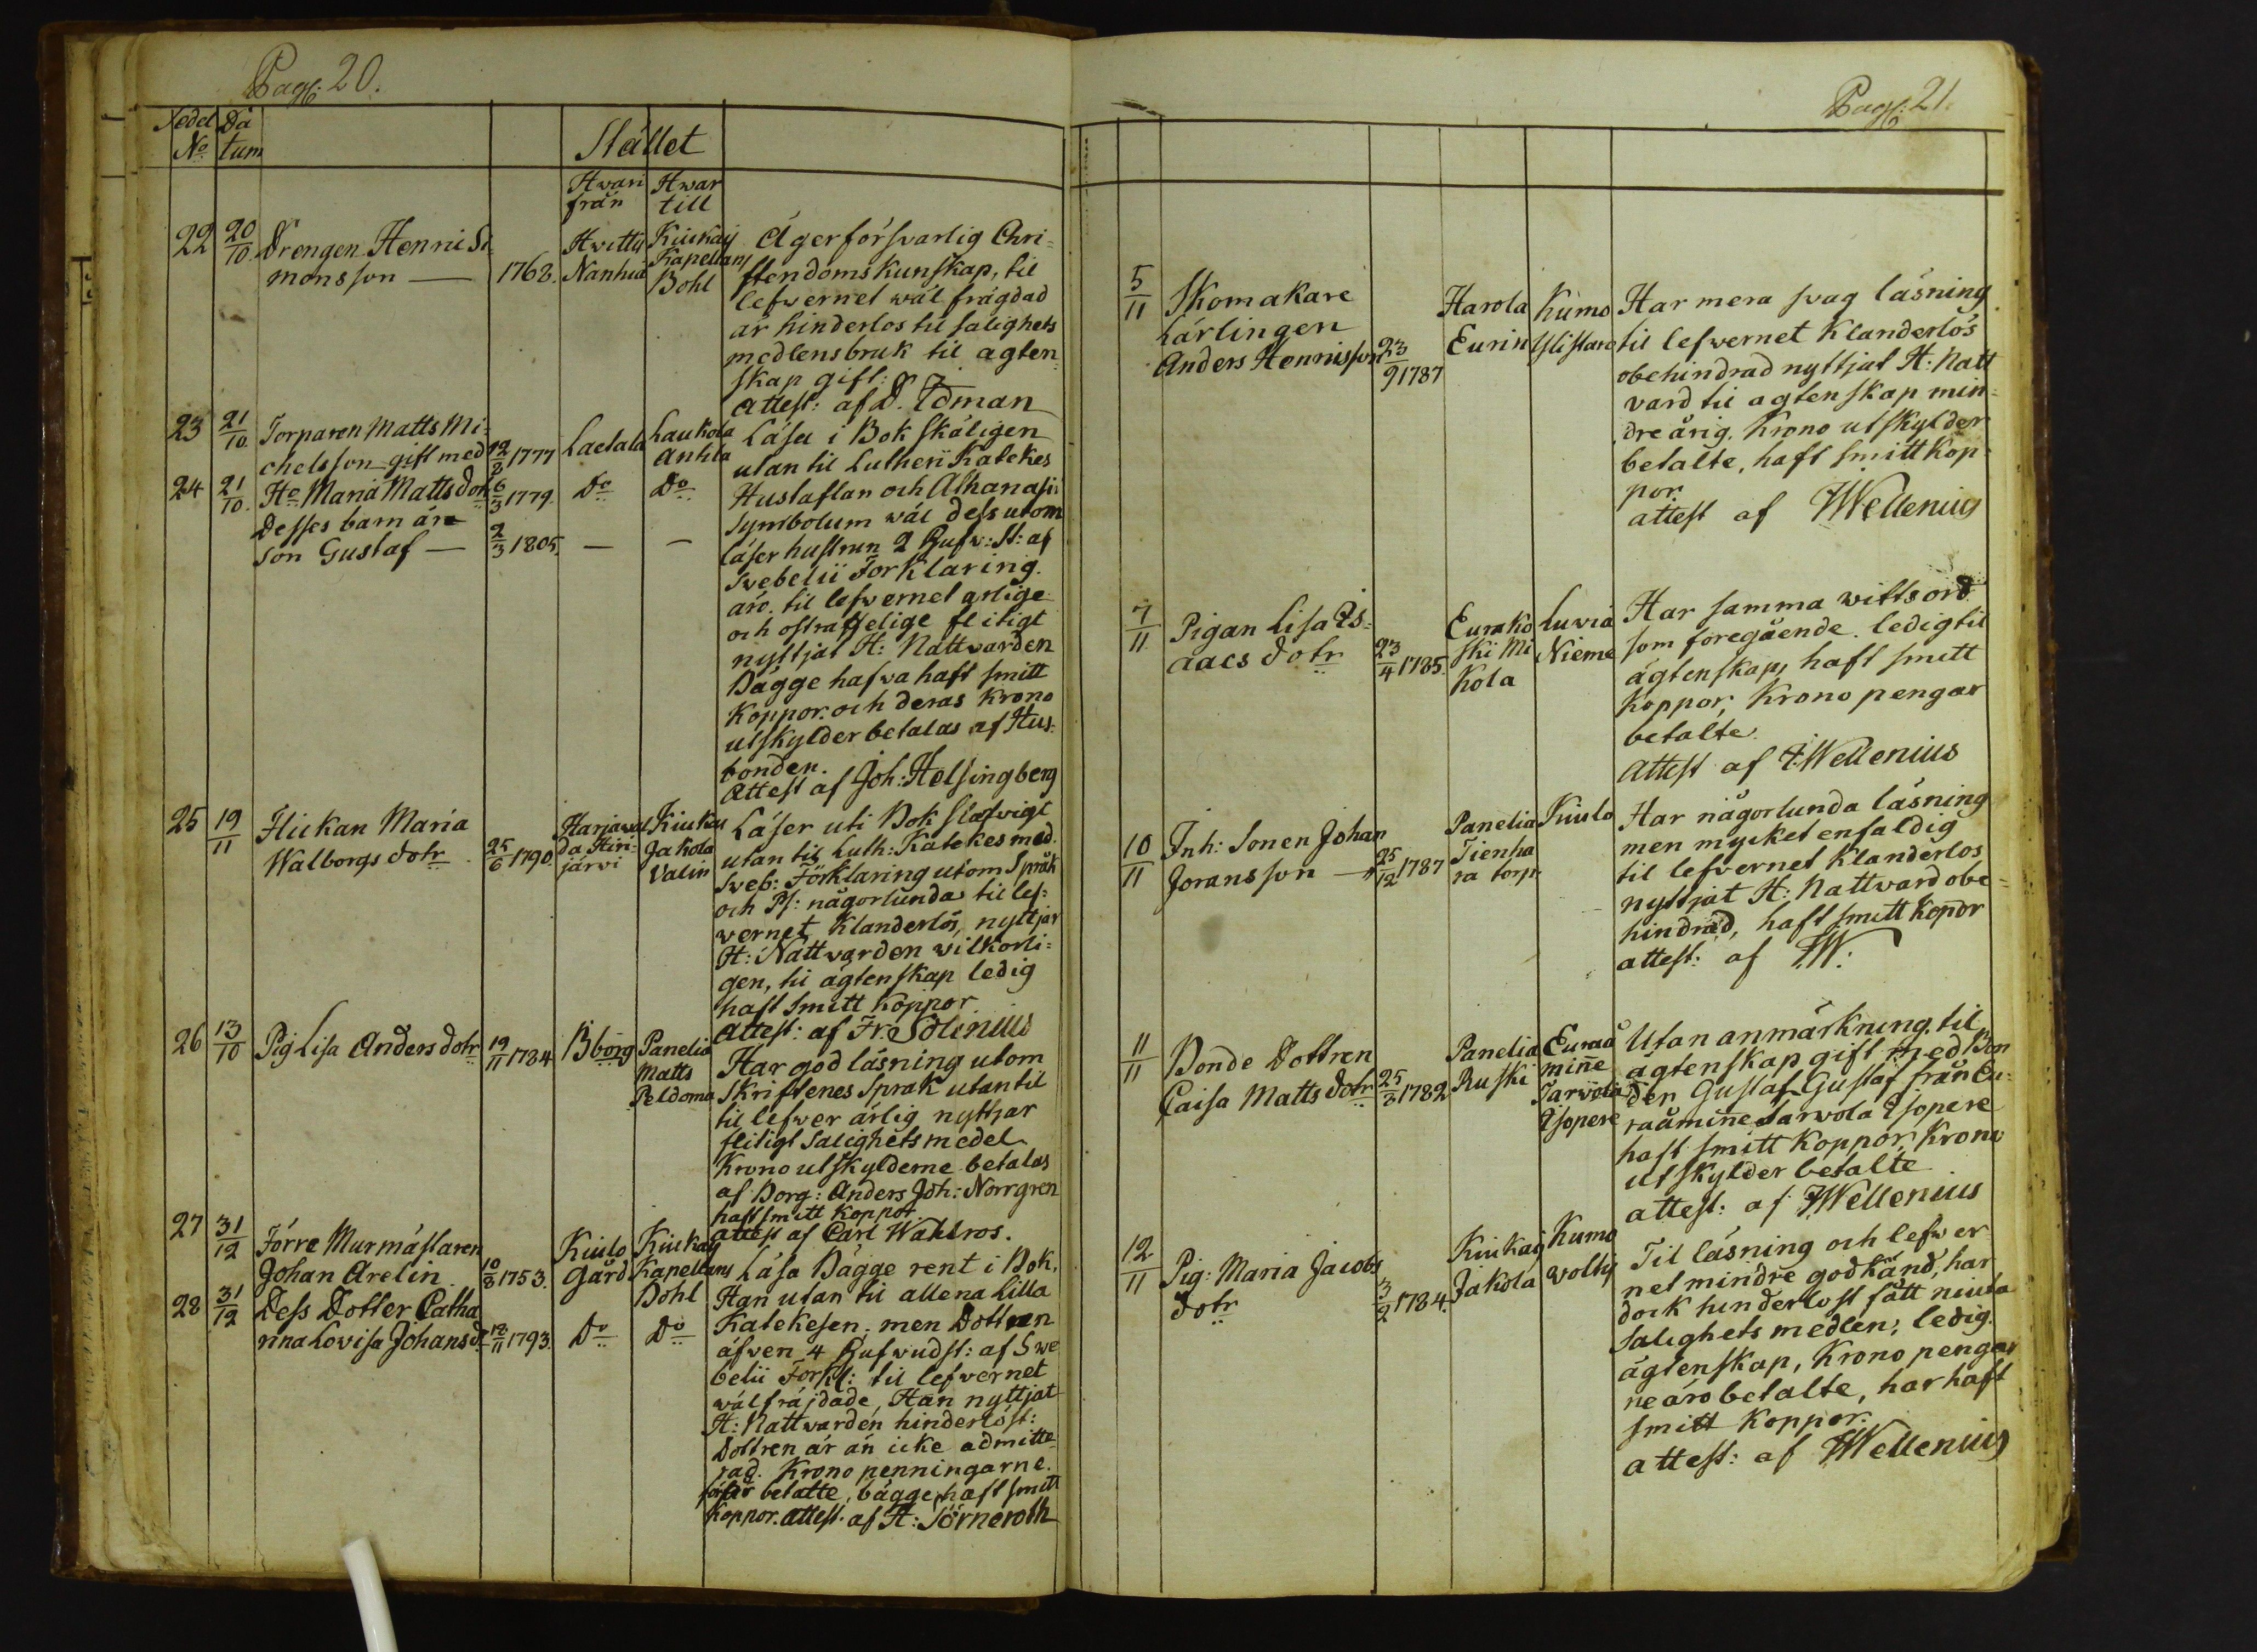 Pag: 20.
Sedel Da
No tum
Stället
Hwari Hwar
från till
22 20/10 Drengen Henric Si
monsson — 1768. Hwitty Nanhia Kiukais Kapellans Bohl
Äger försvarlig Chri=
stendoms kunskap, til
lefwernet wäl frägdad
är hinderlos til salighets
medlens bruk til ägten
skap gift:
Attest: af D. Idman
23 21/10 Torparen Matts Mi=
chelsson gift med 12/8 1777 Laelala Laukola Anhla
Läsa i Bok skäligen
utan til Lutheri Katekes
24 21/10. Ho Maria Mattsdotr 6/3 1779. Do Do
Desses barn är
son Gustaf — 2/3 1805. — —
Hustaflan och Athanasii
Symbolum wäl dessutom
läser hustrun 2 Hufw: St: af
Svebelii Forklaring.
äro til lefwernet ärlige
och ostraffelige flitigt
nyttjat H: Nattwarden
Bagge hafwa haft smitt
Koppor och deras Krono
utskylder betalas af Hus-
bonden.
Attest af Joh: Helsingberg
25 19/11 Flickan Maria
Walborgs dotr 25/6 1790. Harjawal da Hiri- järvi Kiukas Jakola Valin
Läser uti Bok slafwigt
utan til Luth: Katekes med
Sveb: Förklaring utom Språk
och Ps: någorlunda til lef=
wernet Klanderlös, nyttjar
H: Nattwarden wilkorli=
gen, til ägtenskap ledig
haft smitt Koppor
attest: af Fr: Solenius
26 13/10 Pig Lisa Andersdotr 19/11 1784 Bborg Panelia Matts Peldoma
Har god läsning utom
Skriftenes Språk utantil
til lefwer ärlig nyttjar
flitigt Salighets medel
Krono utskylderne betalas
af Borg: Anders Joh: Norrgren
haft smitt koppor
attest af Carl Wahlros.
27 31/12 Förre Murmästaren
Johan Arelin 10/8 1753. Kiulo Gård Kiukais Kapellans Bohl
Läsa Bägge rent i Bok,
Han utan til allena lilla
28 31/12 Dess Dotter Catha
rina Lovisa Johansd: 12/11 1793. Do Do
Katekesen, men Dottren
äfven 4 Hufwudst: af Swe
belii Forkl: til lefwernet
wälfräjdade, Han nyttjat
H: Nattwarden hinderlöst:
Dottren är än icke admitte
rad. Krono penningarne
betalte, bägge haft smitt
Koppor. attest. af H: Törneroth
Pag: 21.
5/11 Skomakare
Lärlingen
Anders Hennisson 23/9 1787 Harola Eurin Kumo Ylistaro
Har mera svag läsning
til lefwernet Klanderlös
obehindrad nyttjat H: Natt
vard til ägtenskap min=
dre årig. Krono utskylder
betalte, haft smitt Kop
por.
attest af FWellenius
7/11 Pigan Lisa Is=
aacs dotr 23/4 1785. Eurako skii Mi kola Luvia Nieme
Har samma wittsord
som föregående. ledig til
ägtenskap, haft smitt
Koppor, Krono pengar
betalte.
Attest af F:Wellenius
10/11 Inh: Sonen Johan
Joransson — 25/12 1787 Panelia Tienha ra torp. Kiulo
Har någorlunda läsning
men mycket enfaldig
til lefvernet Klanderlos
nyttjat H: Nattward obe=
hindrad, haft smitt kopor
attest: af FW:
11/11 Bonde Dottren
Caisa Matts dotr 25/8 1782 Panelia Ruski Euraå mine Tarwola Isopere
Utan anmärkning til
ägtenskap gift med Bon
den Gustaf Gustaf från Eu=
raåmine Tarwola Isopere
haft smitt Koppor, Krono
utskylder betalte
attest: af FWellenius
12/11 Pig: Maria Jacobs
dotr 3/2 1784. Kiukais Jakola Kumo woltty
Til läsning och lefwer
net mindre godkänd, har
dock hinderlöst fått niuta
Salighets medlen, ledig
ägtenskap, Krono pengar
ne äro betalte, har haft
smitt Koppor.
attest: af FWellenius